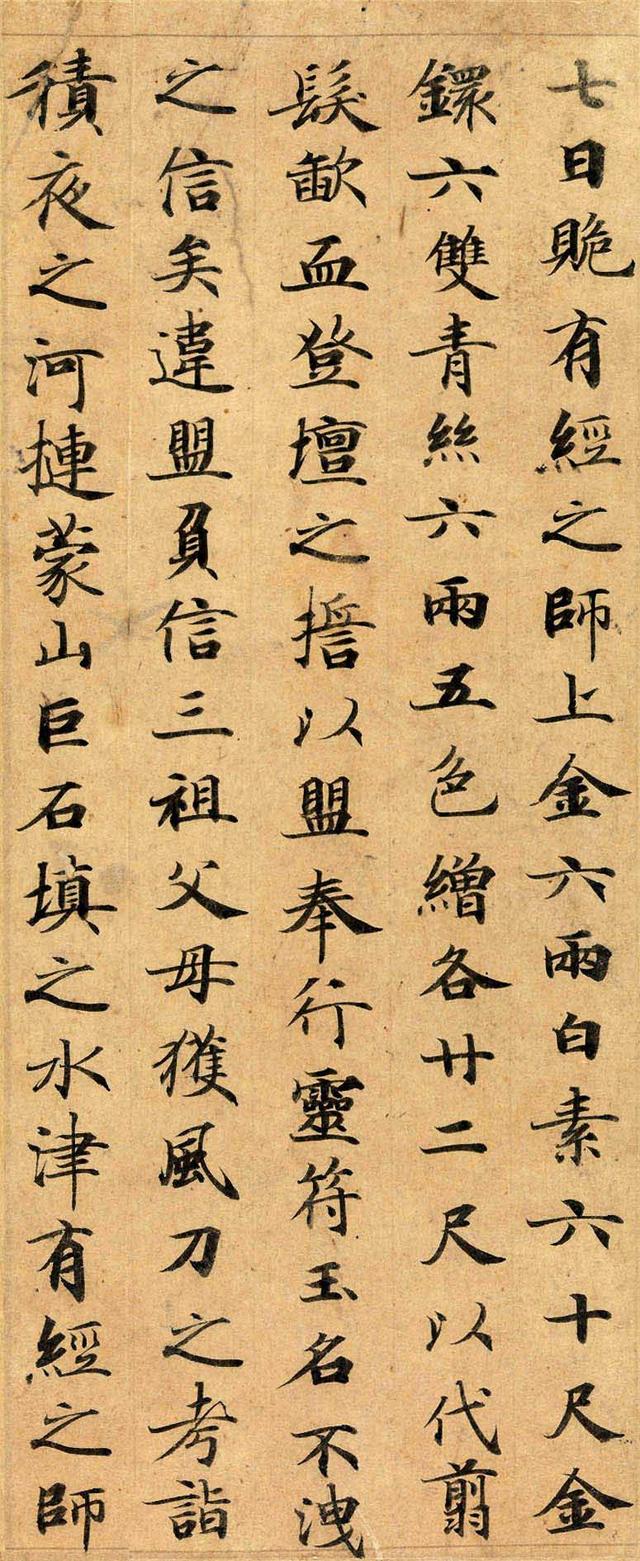 七日贍有經之師上金六兩白素六十尺金
鐶六雙青絲六兩五色繒各廿二尺以代翦
髮歃血登壇之擔以盟奉行靈符玉名不洩
之信矣違盟負信三祖父母獲風刀之考詣
積夜之河摙蒙山巨石填之水津有經之師